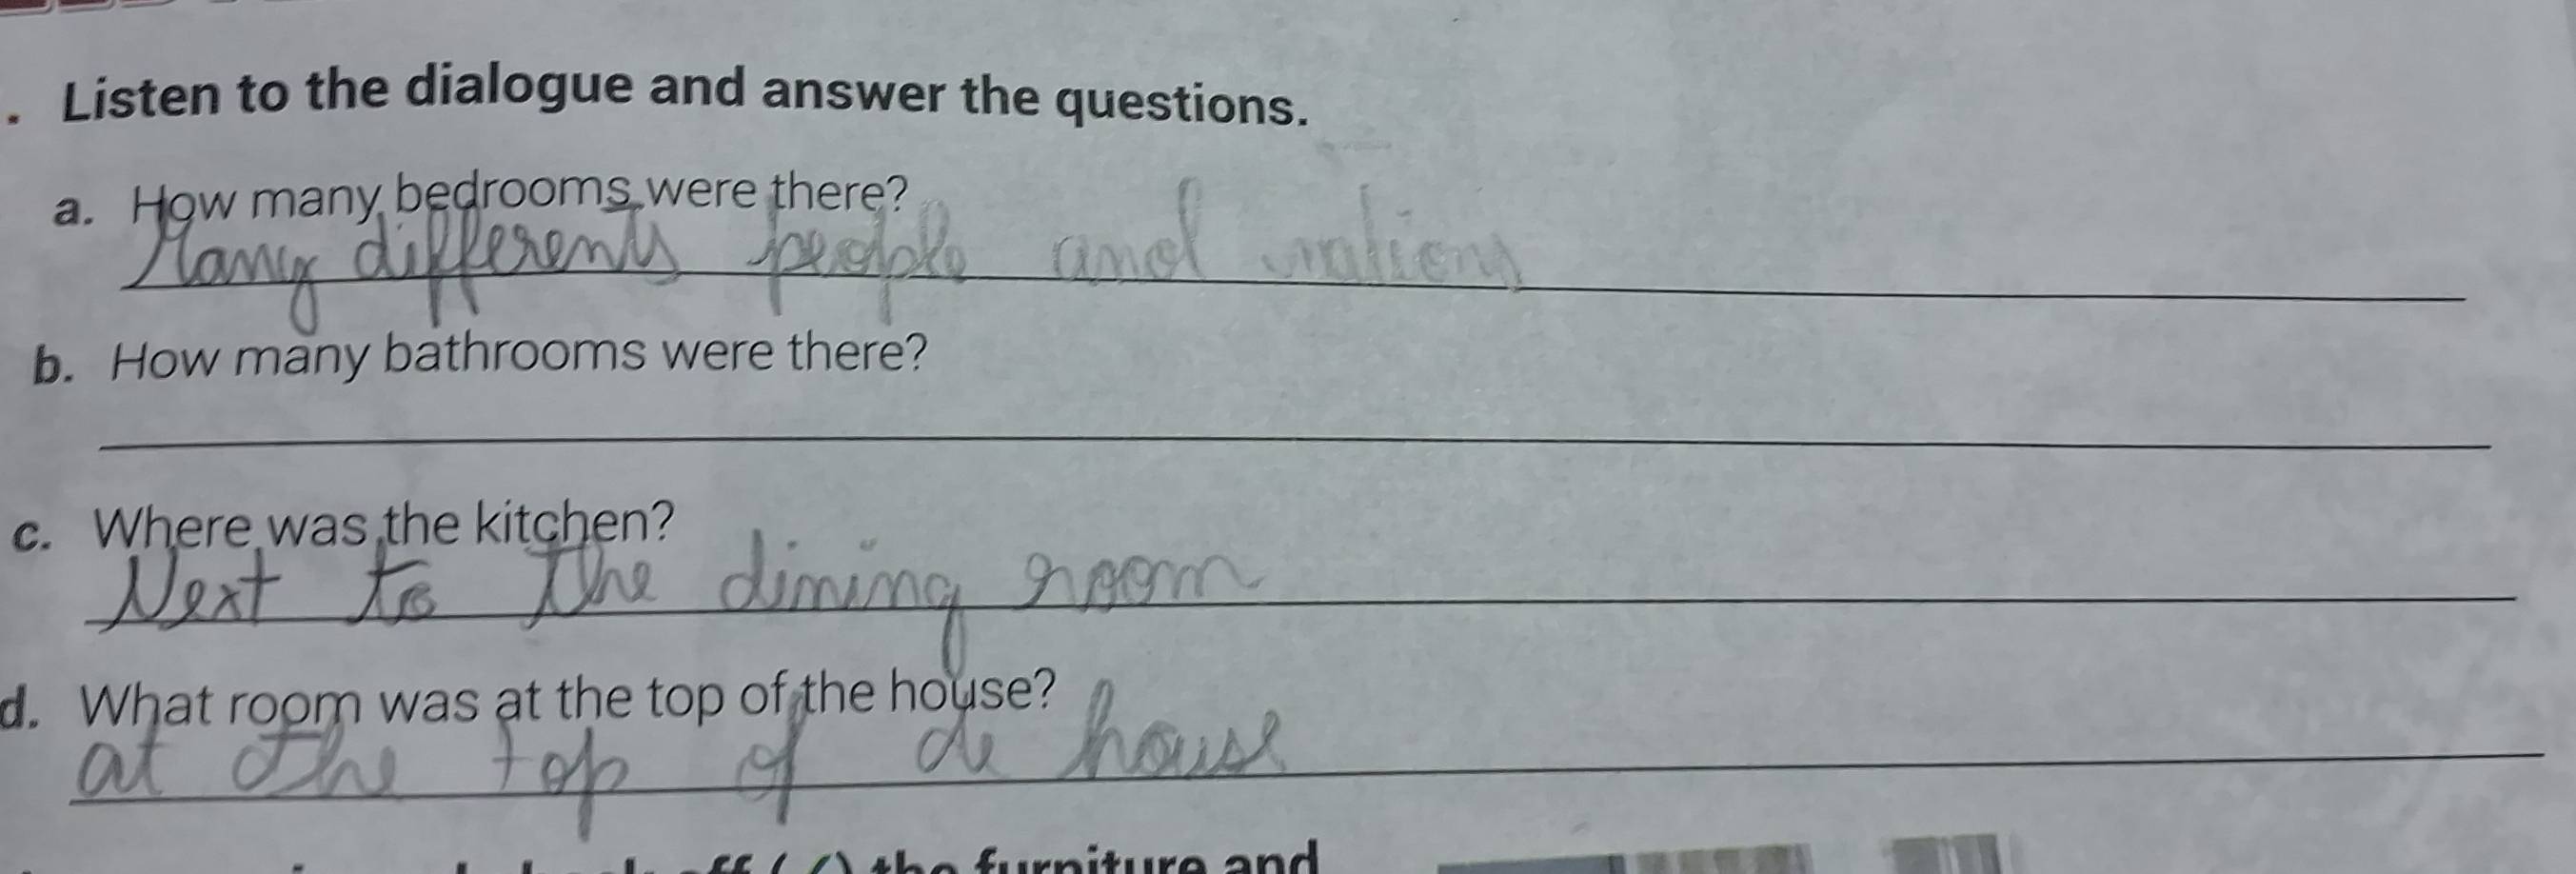 . Listen to the dialogue and answer the questions.
a. How many bedrooms were there?
Many differents people and
b. How many bathrooms were there?
c. Where was the kitchen?
Next to the dining room
d. What room was at the top of the house?
at the top of de house
the furniture and